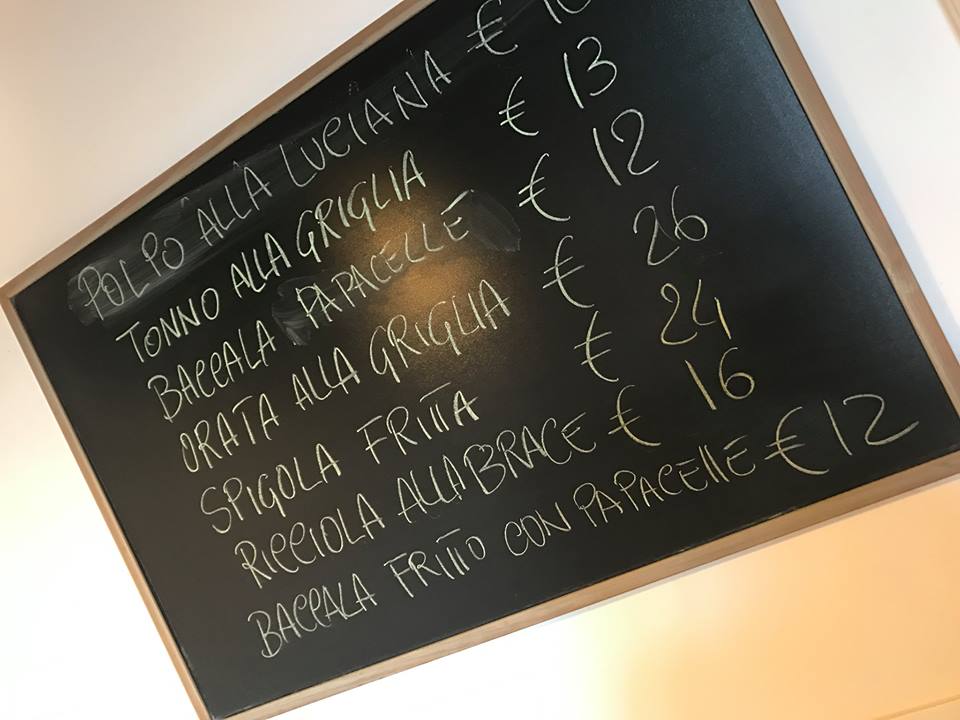 POLPO ALLA LUCIANA €
TONNO ALLA GRIGLIA € 13
BACCALA PAPACELLE € 12
ORATA ALLA GRIGLIA € 26
SPIGOLA FRITTA € 24
RICCIOLA ALLA BRACE € 16
BACCALA FRITTO CON PAPACELLE € 12